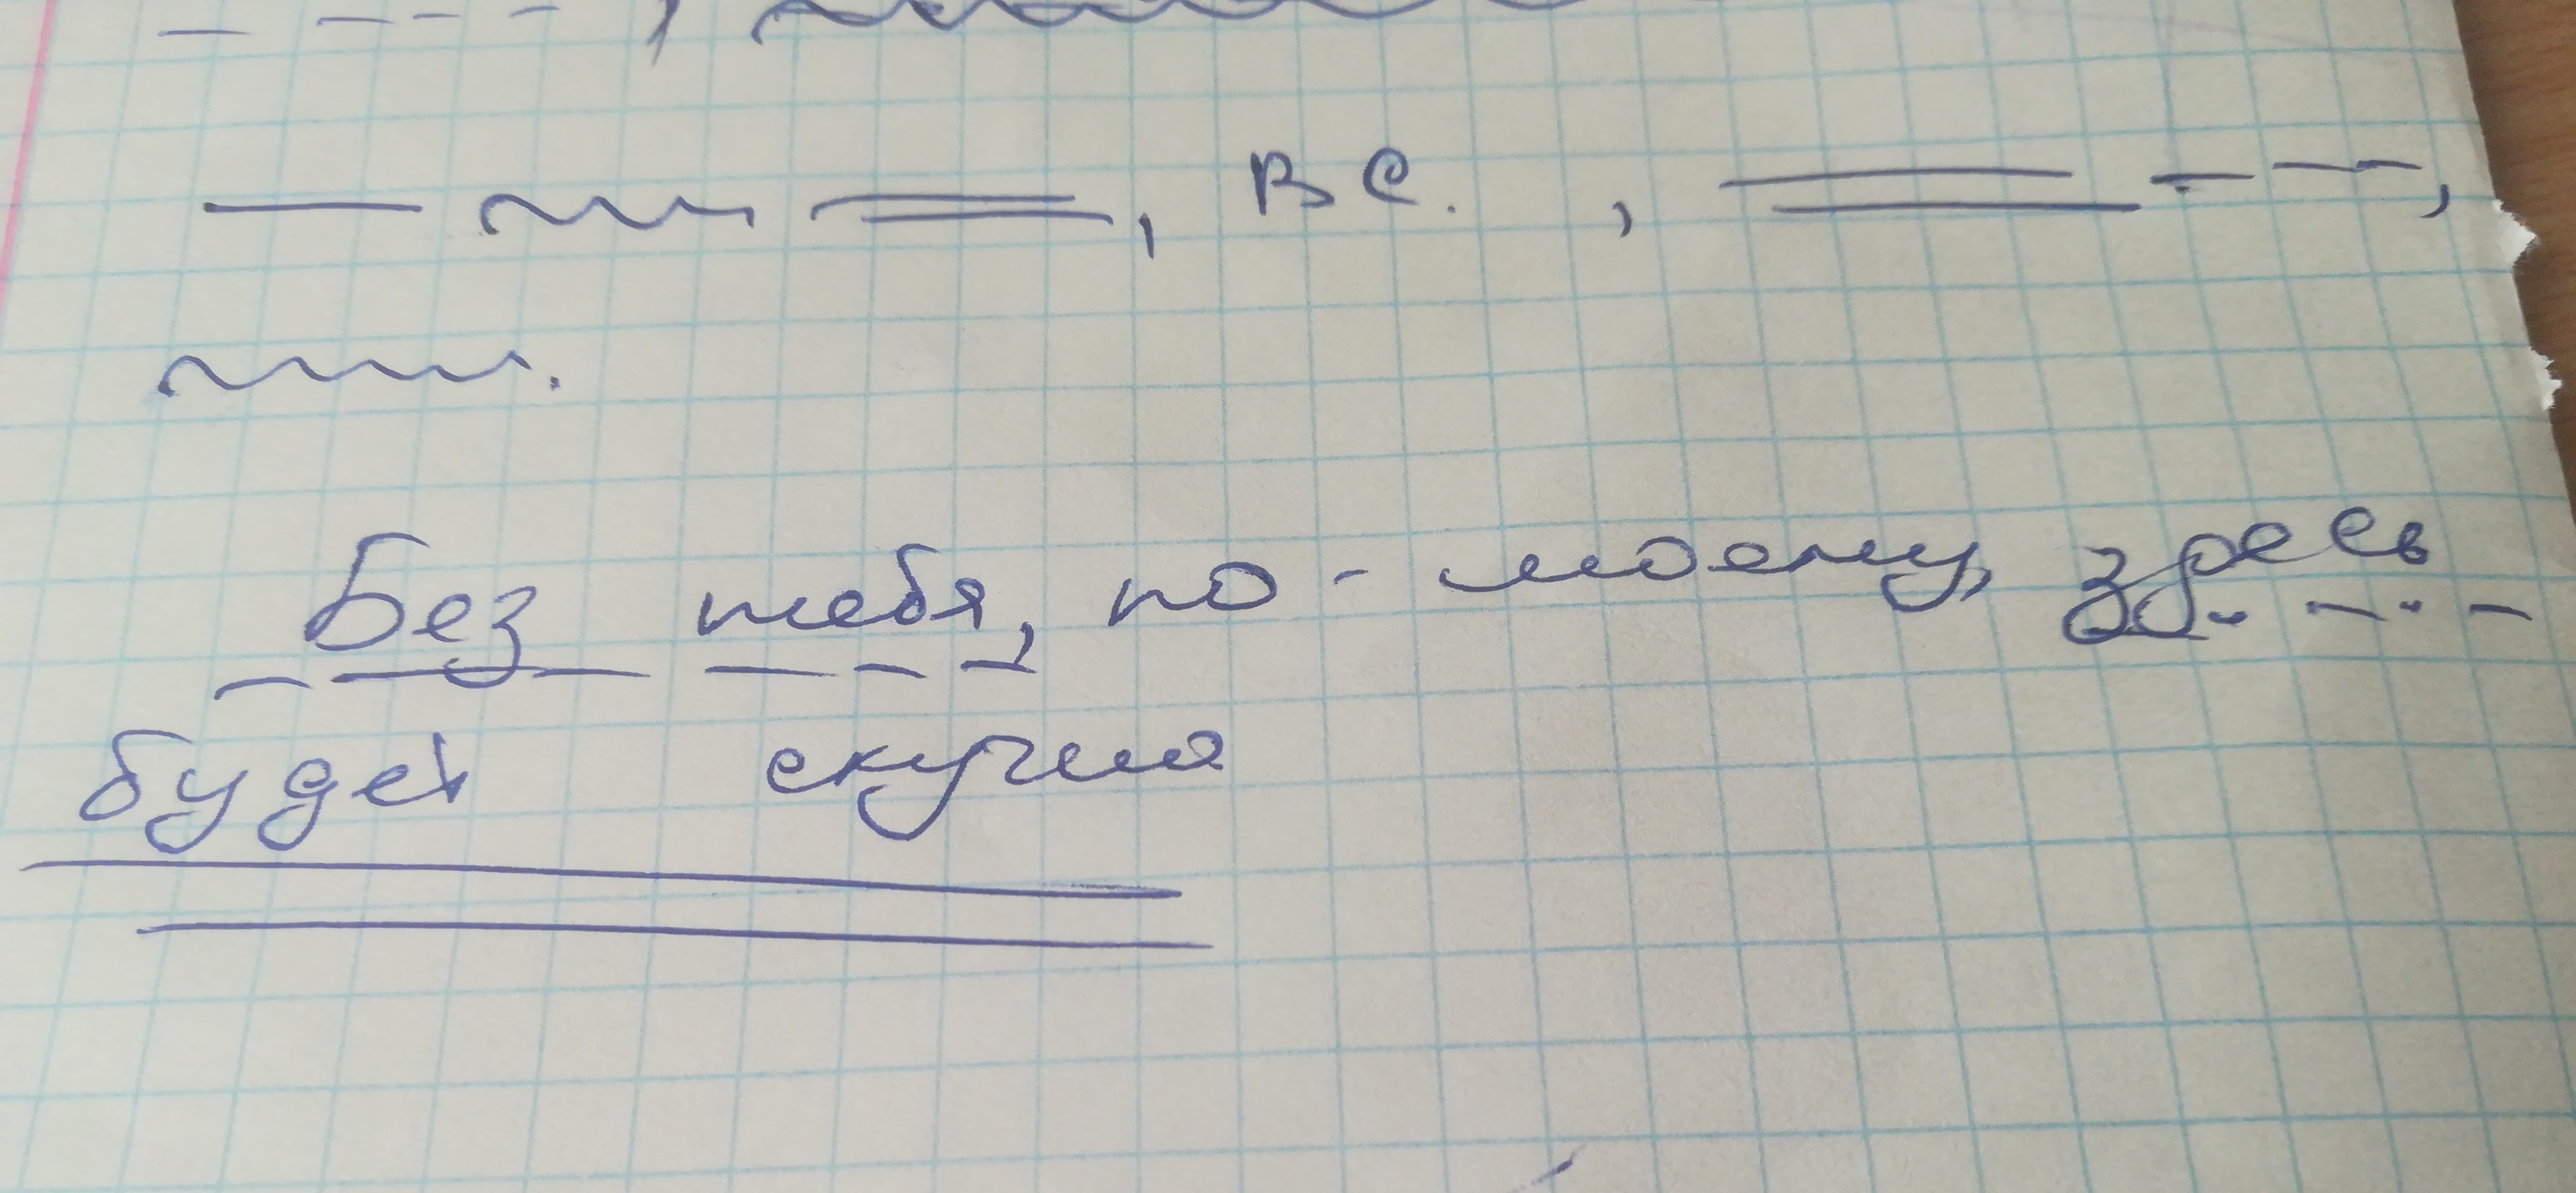 , в с. , ,
.
Без тебя, по-моему, здесь
будет скучно